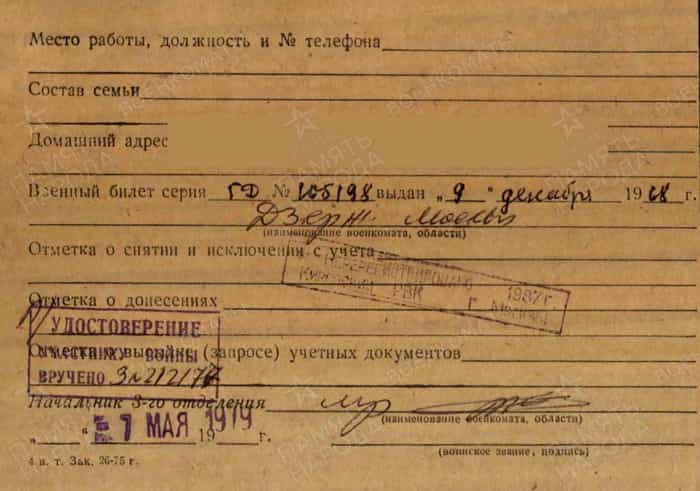 Место работы, должность и № телефона
Состав семьи
Домашний адрес
Военный билет серия ГД № 105198 выдан „ 9 " декабря 1968 г.
Дзерж. Москвы
(наименование военкомата, области)
Отметка о снятии и исключении с учета
1987 г.
РВК г. Москвы
Отметка о донесениях
УДОСТОВЕРЕНИЕ
УЧАСТНИКУ ВОЙНЫ
ВРУЧЕНО
Отметка о высылке (запросе) учетных документов
Начальник 3-го отделения
(наименование военкомата, области)
„ " 7 МАЯ 1979 19 г.
(воинское звание, подпись)
4 в. т. Зак. 26-75 г.
ПАМЯТЬ НАРОДА
ВОЕНКОМАТЫ